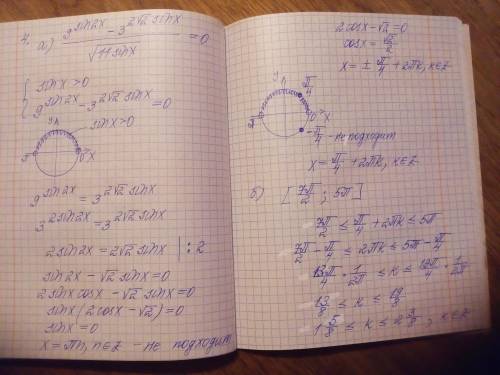 4.
а) (9^(sin2x) - 3^(2√2 sinx)) / √(11 sinx) = 0
{ sinx > 0
9^(sin2x) - 3^(2√2 sinx) = 0
y
sinx>0
0 x
9^(sin2x) = 3^(2√2 sinx)
3^(2sin2x) = 3^(2√2 sinx)
2sin2x = 2√2 sinx | : 2
sin2x - √2 sinx = 0
2sinx cosx - √2 sinx = 0
sinx (2cosx - √2) = 0
sinx = 0
x = πn, n∈Z - не подходит
2cosx - √2 = 0
cosx = √2/2
x = ± π/4 + 2πk, k∈Z
y
π/4
0 x
-π/4 - не подходит
x = π/4 + 2πk, k∈Z
б) [7π/2 ; 5π]
7π/2 ≤ π/4 + 2πk ≤ 5π
7π/2 - π/4 ≤ 2πk ≤ 5π - π/4
13π/4 · 1/2π ≤ k ≤ 19π/4 · 1/2π
13/8 ≤ k ≤ 19/8
1 5/8 ≤ k ≤ 2 3/8, k∈Z